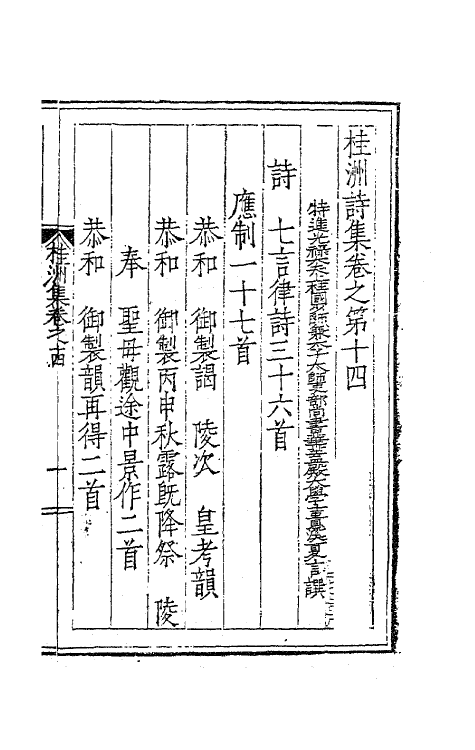 桂洲詩集卷之第十四
特進光祿大夫上柱國少師兼太子太師吏部尚書華蓋殿大學士貴溪夏言譔
詩　七言律詩三十六首
應制一十七首
恭和　御製謁　陵次　皇考韻
恭和　御製丙申秋露既降祭　陵
奉　聖母觀途中景作二首
恭和　御製韻再得二首
桂洲集卷之十四
十